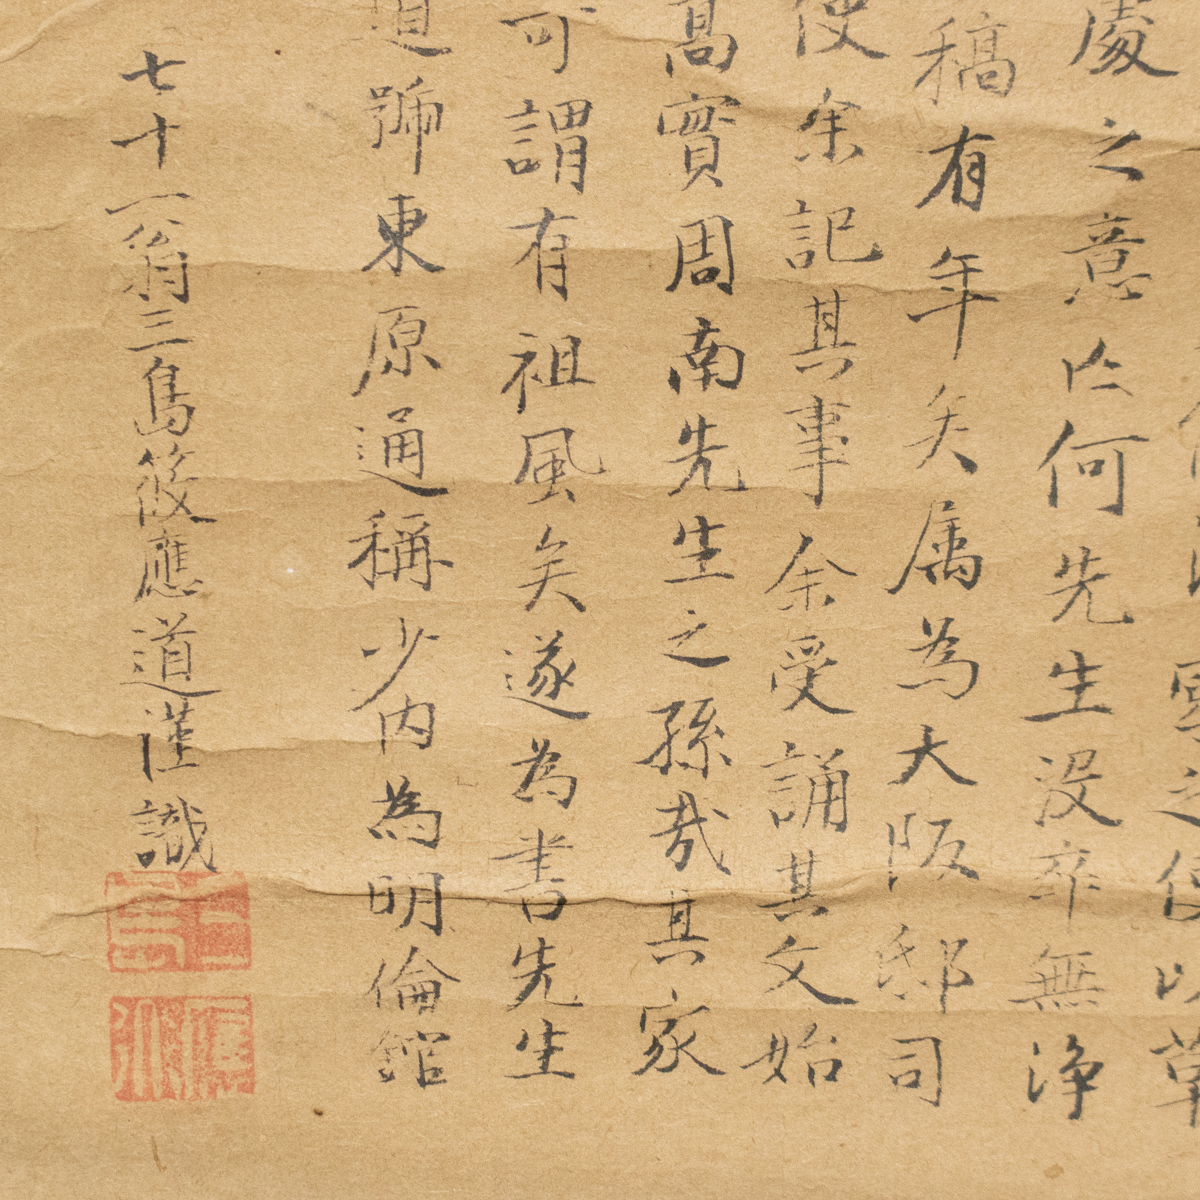 之使以草
處之意吟何先生没卒無浄
稿有年矣属為大阪邸司
使余記其事余受誦其文始
高實周南先生之孫哉其家
可謂有祖風矣遂為書先生
道號東原通稱少内為明倫館
七十一翁三島筱應道謹識